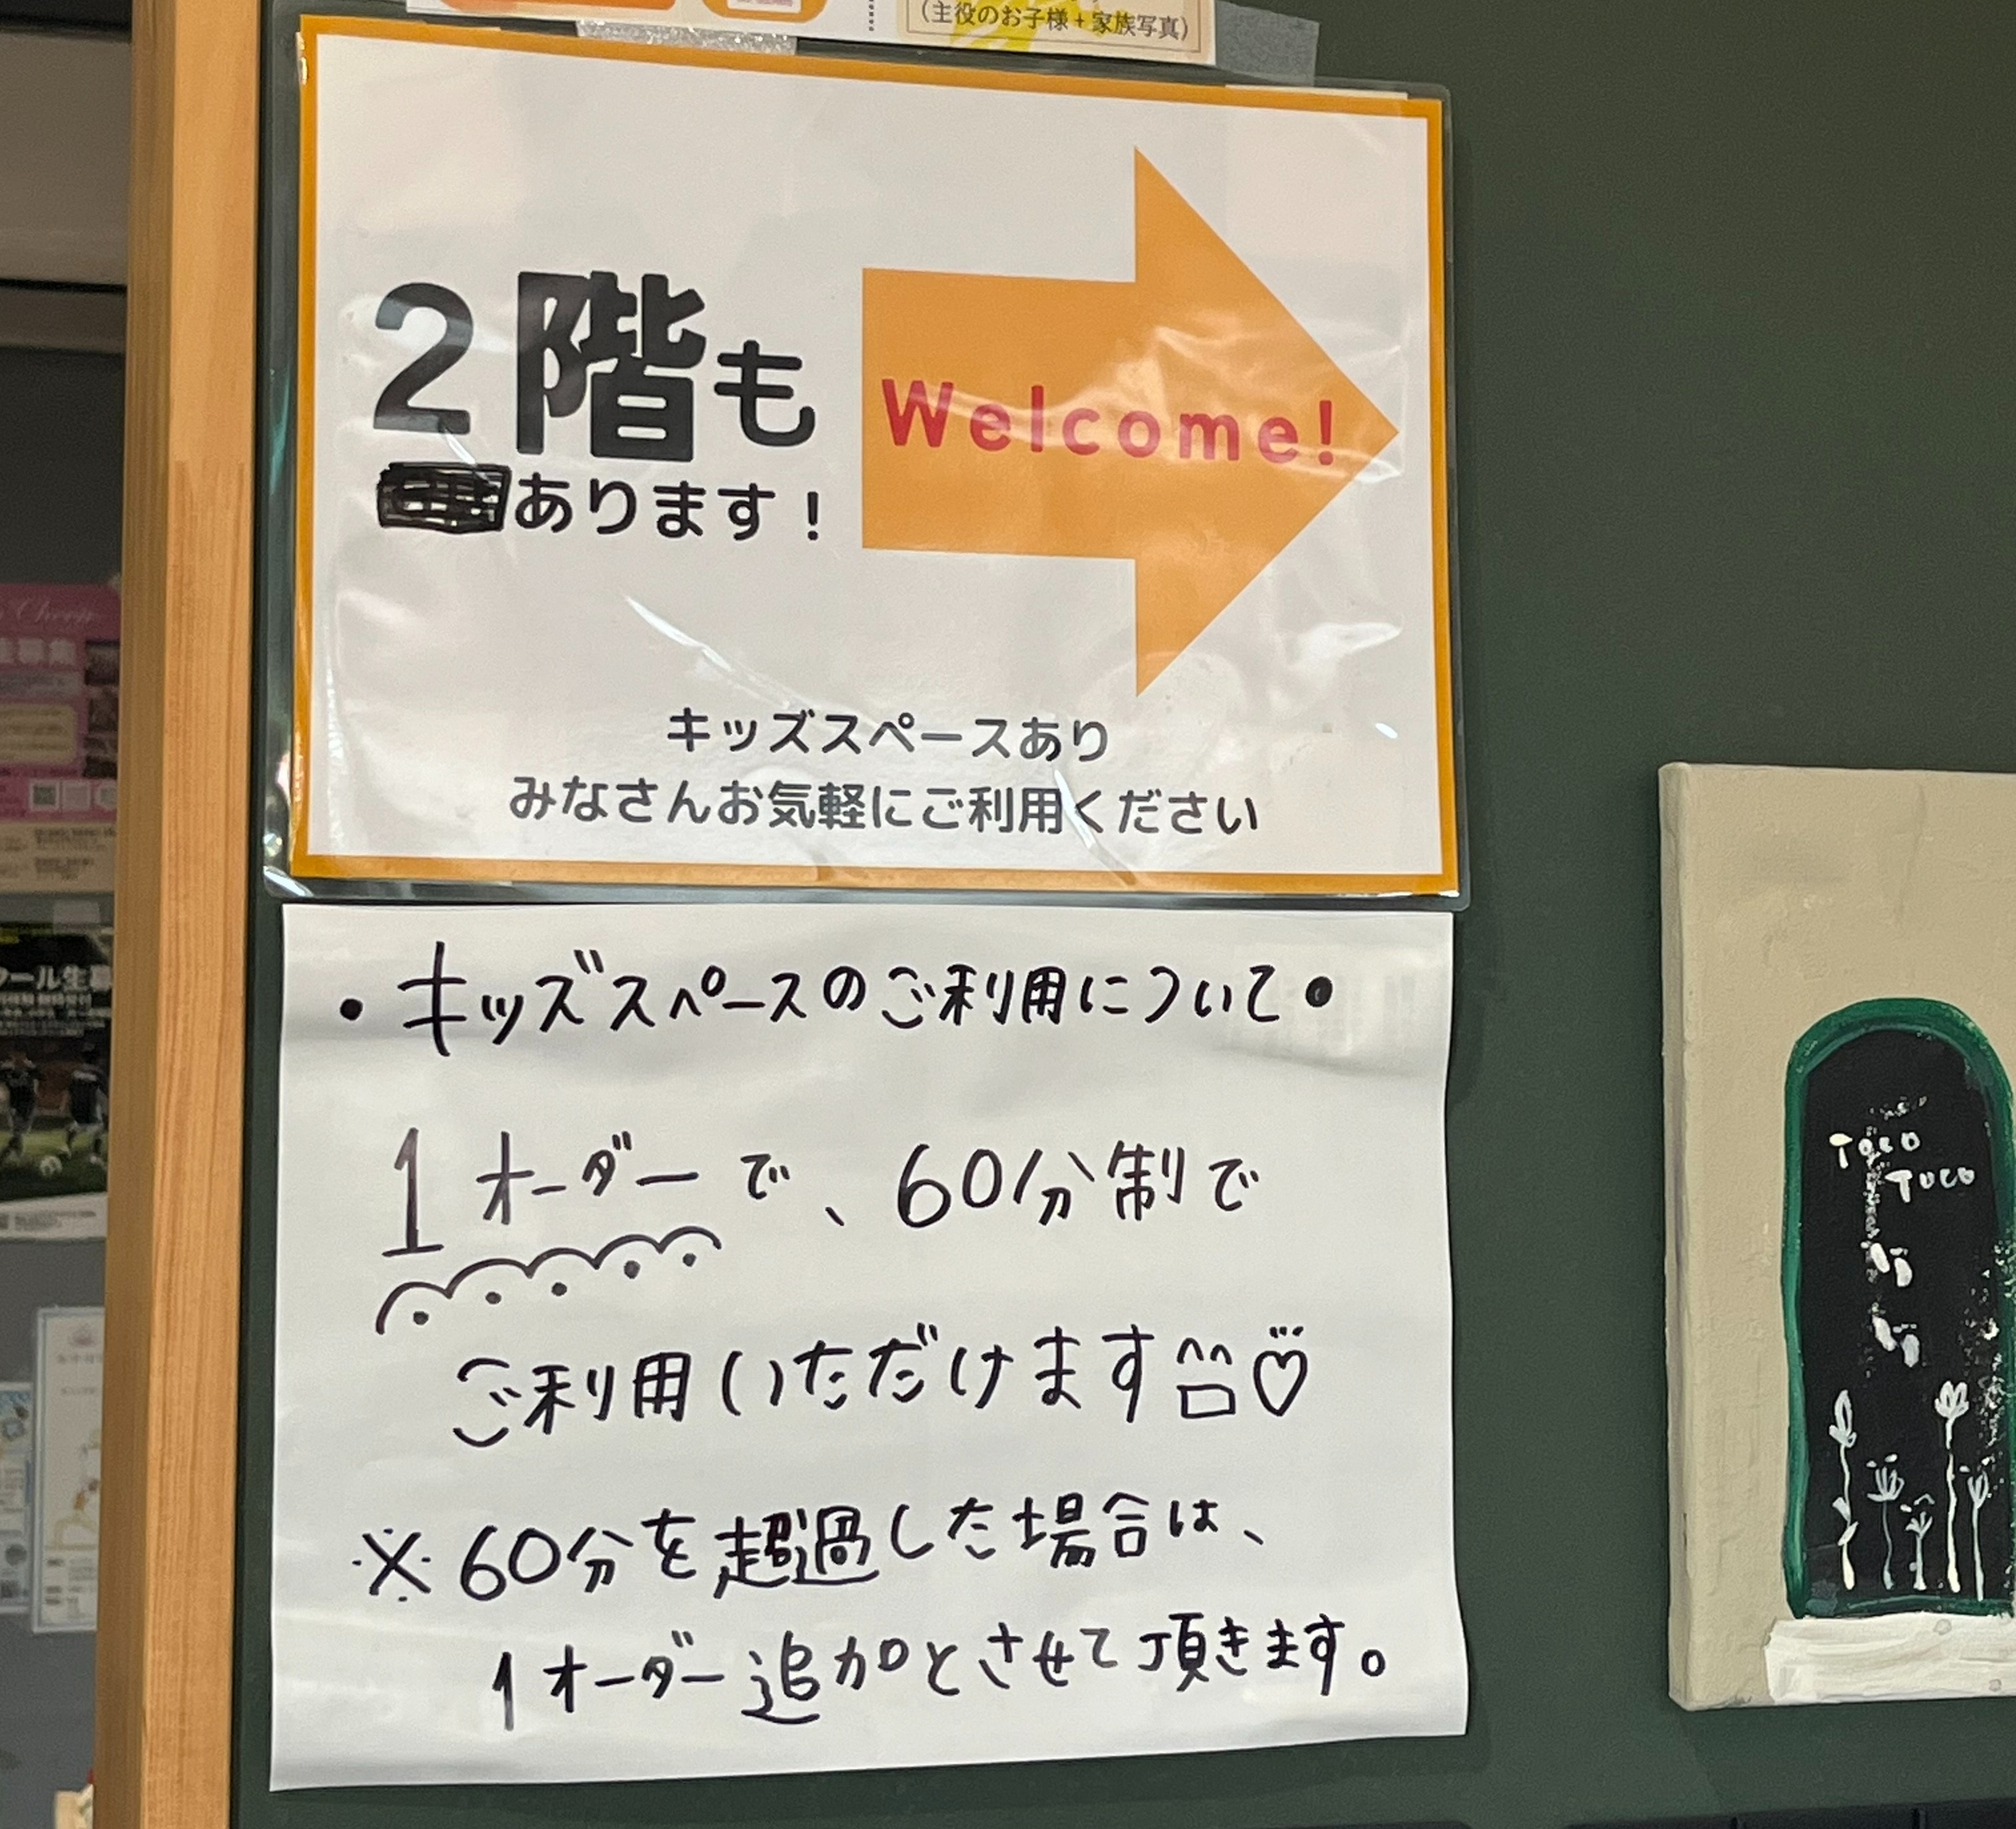 (主役のお子様+家族写真)
2階も
あります!
Welcome!
キッズスペースあり
みなさんお気軽にご利用ください
・キッズスペースのご利用について・
1オーダーで、60分制で
ご利用いただけます^^♡
※60分を超過した場合は、
1オーダー追加とさせて頂きます。
Toco
Toco
クール生募